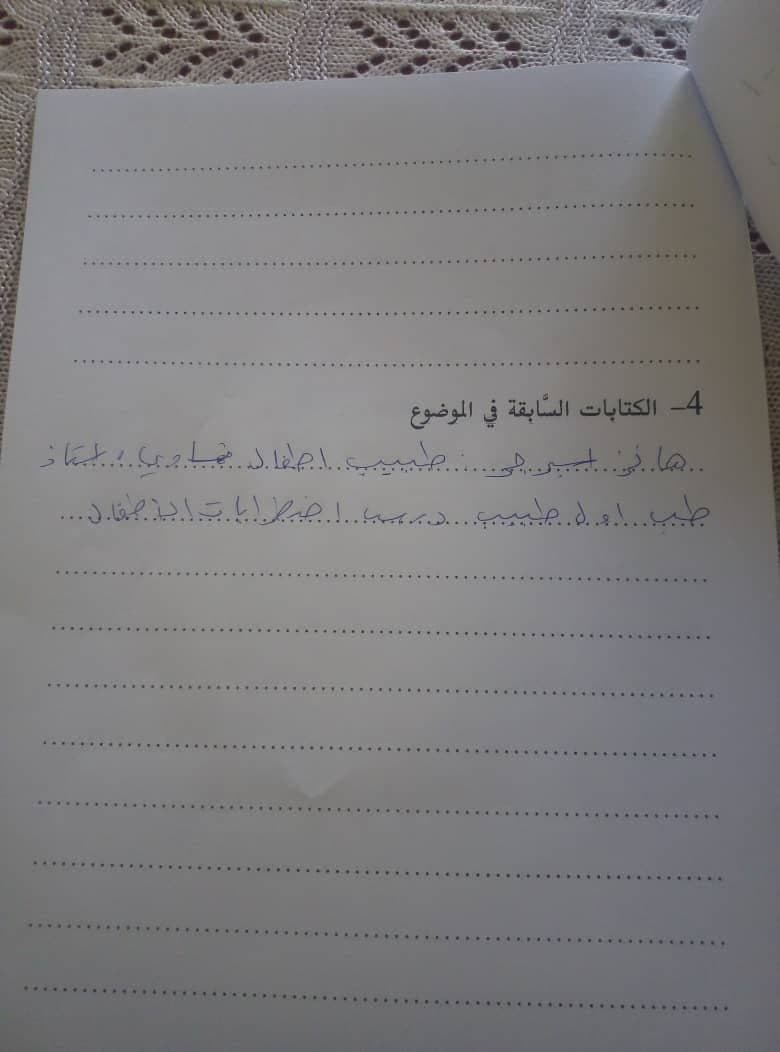 4- الكتابات السَّابقة في الموضوع
هانز اسبرجر : طبيب اطفال نمساوي ، استاذ
طب اول طبيب درس اضطرابات الاطفال